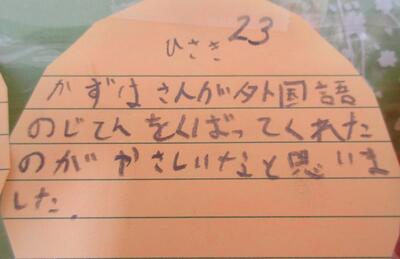 ひさき 23
かずはさんが外国語
のじてんをくばってくれた
のがやさしいなと思いま
した。